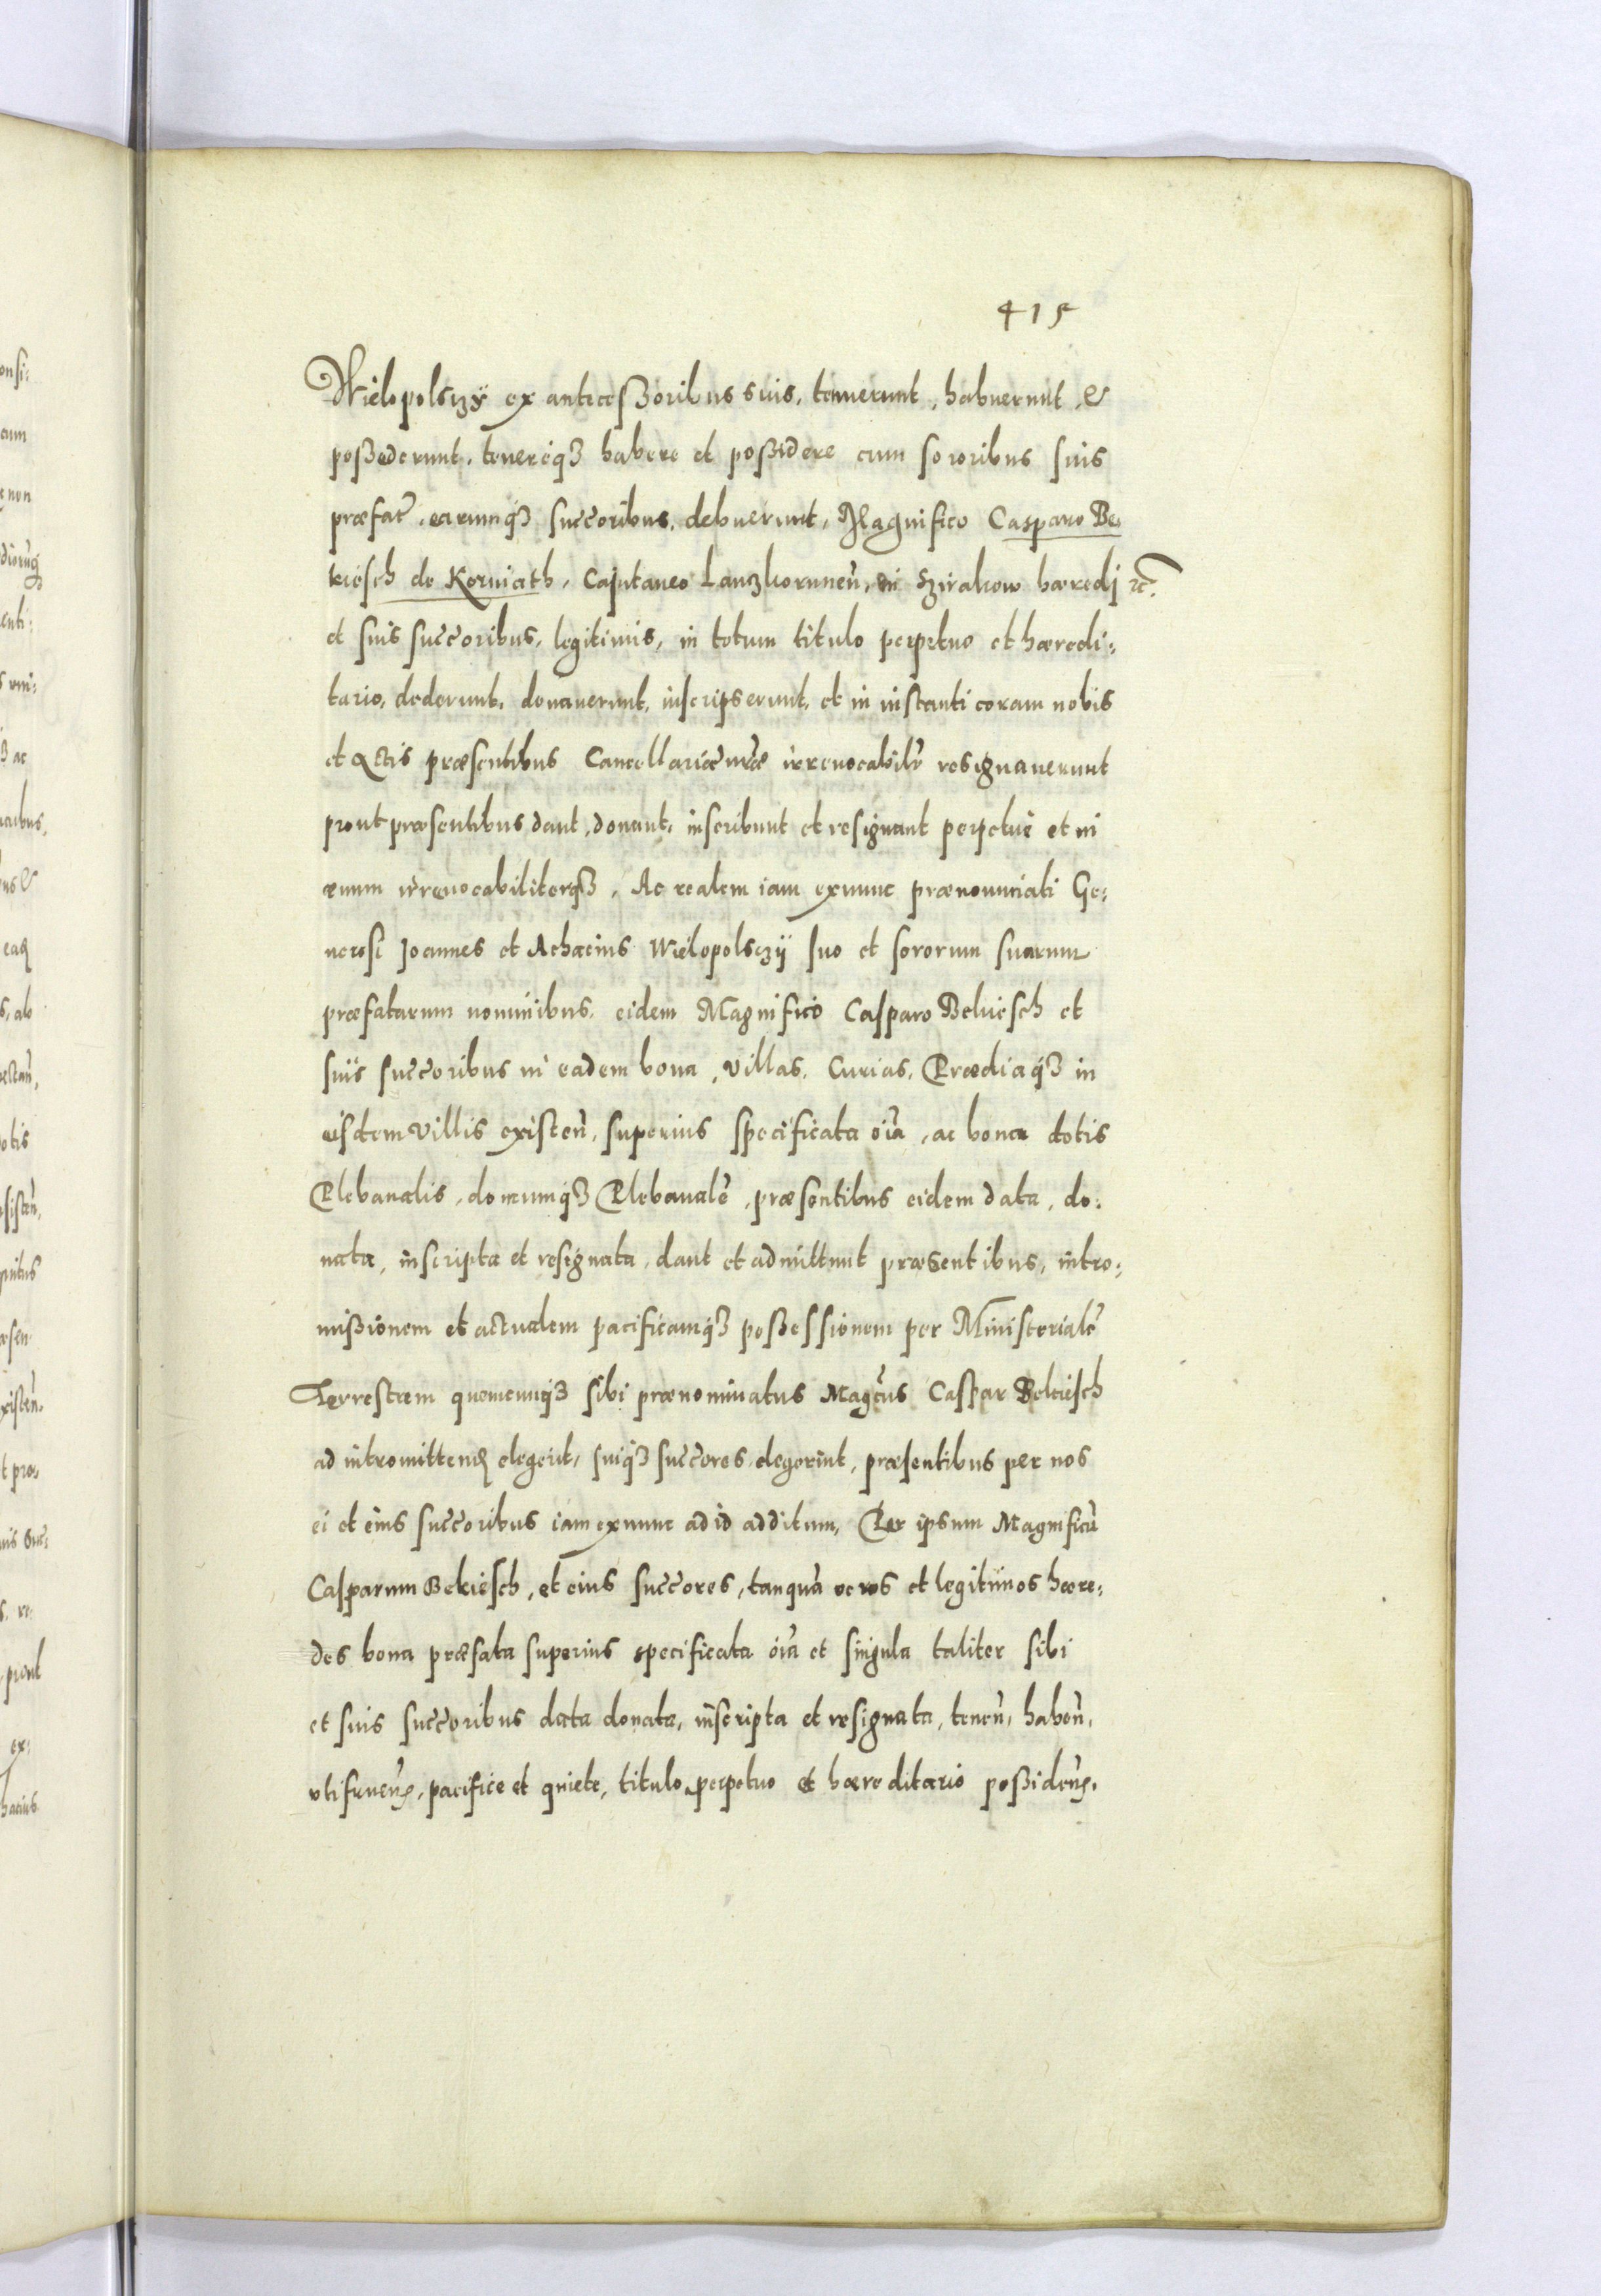 415
Wielopolsczÿ ex anteceßoribus suis, tenuerunt, habuerunt, &
poßederunt, tenereq3 habere et poßidere cum sororibus suis
præfat̃. earumq3 succ̃oribus, debuerunt, Magnifico Casparo Be,
kiesch de Korniath, Capitaneo Lanczkorunen̄, in Szirakow hæredi ⁊c̃.
et suis succ̃oribus, legitimis, in totum titulo perpetuo et hæredi,
tario, dederunt, donauerunt, inscripserunt, et in instanti coram nobis
et Actis præsentibus Cancellariæ nr̃æ irreuocabilr̃ resignauerunt
prout præsentibus dant, donant, inscribunt et resignant perpetuè et in
æuum irreuocabiliterq3, Ac realem iam exnunc prænonunciati Ge,
nerosi Joannes et Achacius Wielopolsczÿ suo et sororum suarum
præfatarum nominibus, eidem Magnifico Casparo Bekiesch et
suis succ̃oribus in eadem bona, villas, Curias, Prædiaq3 in
eisdem villis existen̄, superius specificata oĩa, ac bona dotis
Plebanalis, domumq3 Plebanalẽ, præsentibus eidem data, do,
nata, inscripta et resignata, dant et admittunt præsentibus, intro,
mißionem et actualem pacificamq3 poßessionem per Ministerialẽ
Terrestrem quemcunq3 sibi prænominatus Magc̃us Caspar Bekiesch
ad intromitten̄ elegerit, suiq3 succ̃ores elegerint, præsentibus per nos
ei et eius succ̃oribus iam exnunc ad id additum, Per ipsum Magnificũ
Casparum Bekiesch, et eius succ̃ores, tanquã veros et legitimos hære,
des bona præfata superius specificata oĩa et singula taliter sibi
et suis succ̃oribus data donata, inscripta et resignata, tenen̄, haben̄,
vtifruen̄, pacifice et quiete, titulo perpetuo et hæreditario poßiden̄.